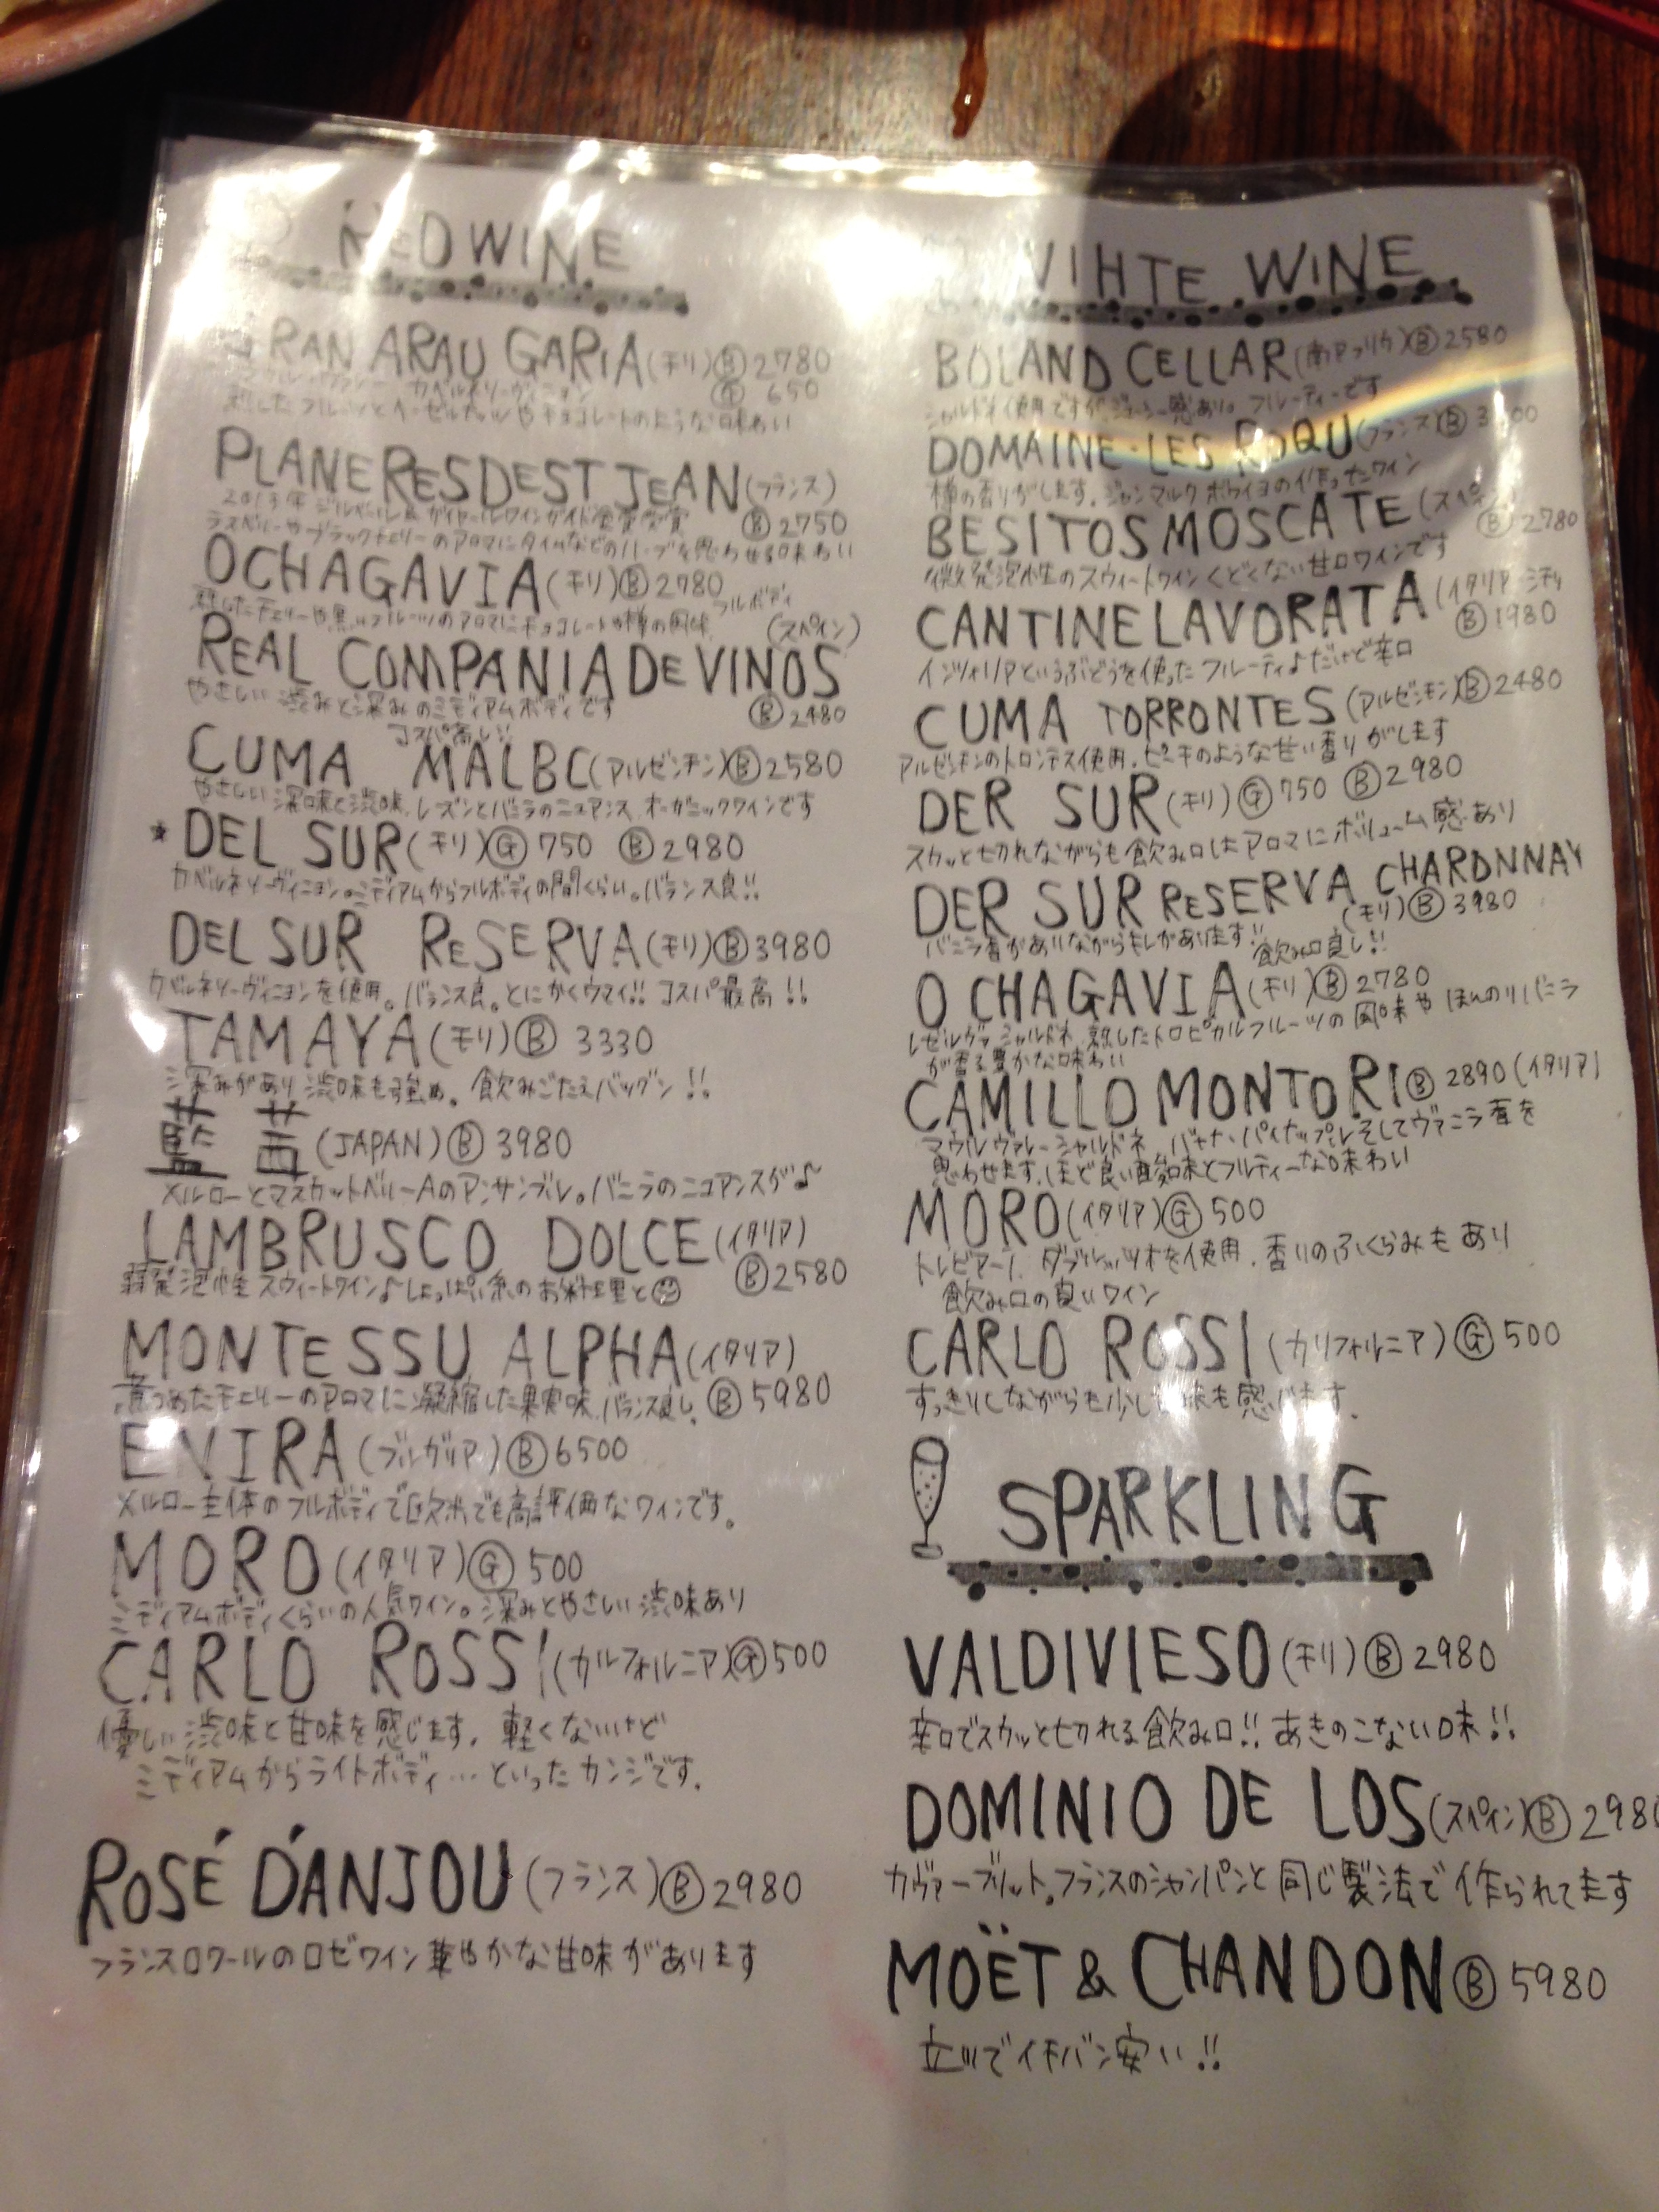 RED WINE
GRAN ARAU GARIA (チリ) Ⓑ 2780
カベルネソーヴィニョン Ⓖ 650
熟したフルーツとヘーゼルナッツやチョコレートのような味わい
PLANERES DEST JEAN (フランス)
2013年 ジルベール&ガイヤールワインガイド金賞受賞 Ⓑ 2750
ラズベリーやブラックチェリーのアロマにタイムなどのハーブを思わせる味わい
OCHAGAVIA (チリ) Ⓑ 2780
熟したチェリーや黒いフルーツのアロマにチョコレートや樽の風味 フルボディ
REAL COMPANIA DE VINOS (スペイン)
やさしい渋みと深みのミディアムボディです Ⓑ 2480
コスパ高し!!
CUMA MALBC (アルゼンチン) Ⓑ 2580
やさしい深味と渋味、レーズンとバニラのニュアンス、オーガニックワインです
★ DEL SUR (チリ) Ⓖ 750 Ⓑ 2980
カベルネソーヴィニョン。ミディアムからフルボディの間くらい。バランス良!!
DEL SUR RESERVA (チリ) Ⓑ 3980
カベルネソーヴィニョンを使用。バランス良。とにかくウマイ!! コスパ最高!!
TAMAYA (チリ) Ⓑ 3330
深みがあり渋味も強め。飲みごたえバッグン!!
藍茜 (JAPAN) Ⓑ 3980
メルローとマスカットベリーAのアンサンブル。バニラのニュアンスが♪
LAMBRUSCO DOLCE (イタリア)
弱発泡性スウィートワイン♪しょっぱい系のお料理と☺ Ⓑ 2580
MONTESSU ALPHA (イタリア)
煮つめたチェリーのアロマに凝縮した果実味、バランス良し。 Ⓑ 5980
ENIRA (ブルガリア) Ⓑ 6500
メルロー主体のフルボディで欧米でも高評価なワインです。
MORO (イタリア) Ⓖ 500
ミディアムボディくらいの人気ワイン。深みとやさしい渋味あり
CARLO ROSSI (カルフォルニア) Ⓖ 500
優しい渋味と甘味を感じます。軽くないけど
ミディアムからライトボディ…といったカンジです。
ROSÉ D'ANJOU (フランス) Ⓑ 2980
フランスロワールのロゼワイン華やかな甘味があります
VIHTE WINE
BOLAND CELLAR (南アフリカ) Ⓑ 2580
シャルドネ使用ですが、ジューシー感あり。フルーティーです
DOMAINE・LES ROQU (フランス) Ⓑ
樽の香りがします。ジャンマルク ボワイヨの作ったワイン
BESITOS MOSCATE (スペイン) Ⓑ 2780
微発泡性のスウィートワインくどくない甘口ワインです
CANTINE LAVORATA (イタリア Ⓑ 1980
インツォリアというぶどうを使ったフルーティ♪だけど辛口
CUMA TORRONTES (アルゼンチン) Ⓑ 2480
アルゼンチンのトロンテス使用。ピーチのような甘い香りがします
DER SUR (チリ) Ⓖ 750 Ⓑ 2980
スカッと切れながらも飲み口したアロマにボリューム感あり
DER SUR RESERVA CHARDNNAY
(チリ) Ⓑ 3980
バニラ香がありながらキレがあります!! 飲み口良し!!
O CHAGAVIA (チリ) Ⓑ 2780
レゼルヴァシャルドネ 熟したトロピカルフルーツの風味やほんのりバニラ
が香る豊かな味わい
CAMILLO MONTORI Ⓑ 2890 (イタリア)
マウルヴァレーシャルドネ バナナ、パイナップルそしてヴァニラ香を
思わせます。ほど良い酸味とフルティーな味わい
MORO (イタリア) Ⓖ 500
トレビアーノ、ダブルッツオを使用。香りのふくらみもあり
飲み口の良いワイン
CARLO ROSSI (カリフォルニア) Ⓖ 500
すっきりしながらも少し甘味も感じます。
SPARKLING
VALDIVIESO (チリ) Ⓑ 2980
辛口でスカッと切れる飲み口!! あきのこない味!!
DOMINIO DE LOS (スペイン) Ⓑ 2980
カヴァーブリュット。フランスのシャンパンと同じ製法で作られてます
MOËT & CHANDON Ⓑ 5980
立川でイチバン安い!!